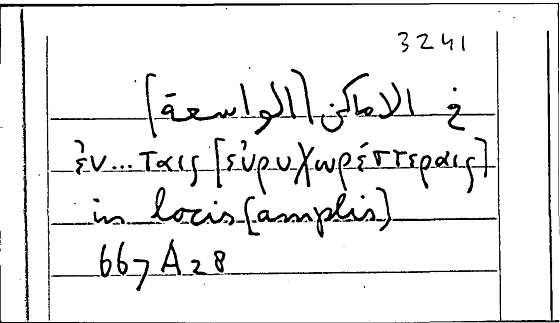 3241
في الاماكن [الواسعة]
ἐν... ταις [εὐρυχωρέστεραις]
in locis [amplis]
667 A 28